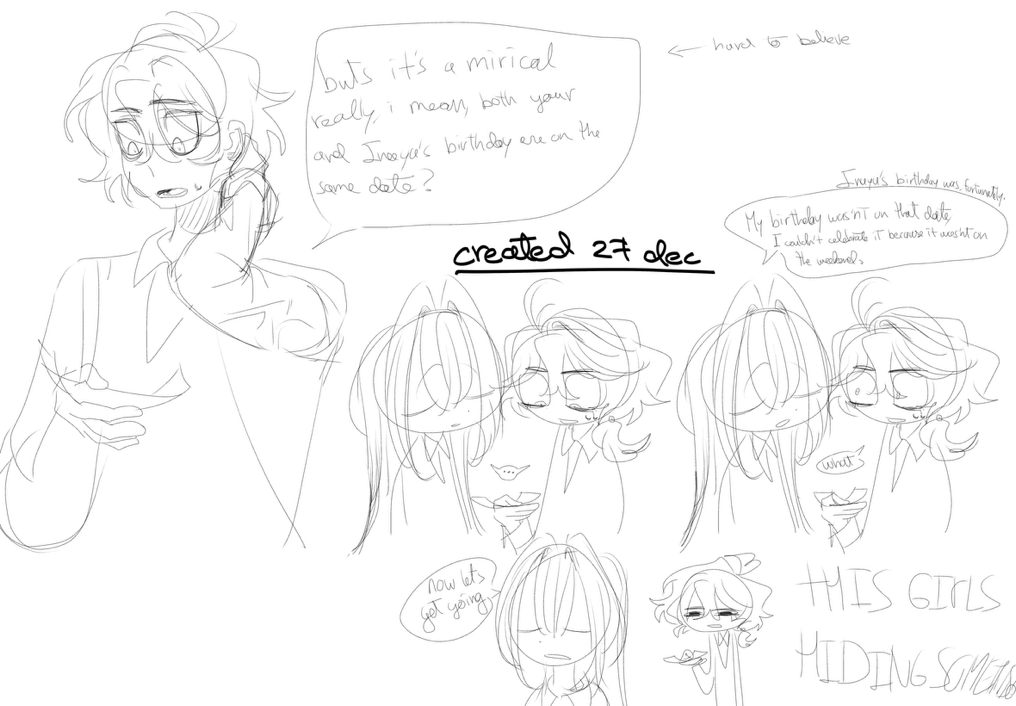 buts it's a mirical
really, i mean, both your
and Ineeya's birthday are on the
same date?
← hard to believe
created 27 dec
Ineya's birthday was, fortunately.
My birthday wasn't on that date,
I couldn't celebrate it because it wasn't on
the weekend.
...
what
now lets
get going
THIS GIRLS
HIDING